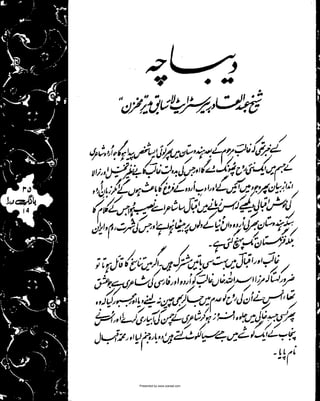 دیباچہ
شیخ عبدالقادر بیرسٹر ایٹ لاء سابق مدیر "مخزن"
کسے خبر تھی کہ غالب مرحوم کے بعد ہندوستان میں پھر کوئی ایسا شخص پیدا ہوگا جو اردو شاعری
کے جسم میں ایک نئی روح پھونک دے گا اور جس کی بدولت غالب کا بے نظیر تخیل اور نرالا
انداز بیان پھر وجود میں آئیں گے اور ادب اردو کے فروغ کا باعث ہوں گے مگر زبان اردو
کی خوش اقبالی دیکھیے کہ اس زمانے میں اقبال سا شاعر اسے نصیب ہوا جس کے کلام کا
سکہ ہندوستان بھر کی اردو داں دنیا کے دلوں پر بیٹھا ہوا ہے اور جس کی شہرت روم و ایران
بلکہ فرنگستان تک پہنچ گئی ہے۔
غالب اور اقبال میں بہت سی باتیں مشترک ہیں۔ اگر میں تناسخ کا قائل ہوتا تو
ضرور کہتا کہ مرزا اسد اللہ خاں غالب کو اردو اور فارسی کی شاعری سے جو عشق
تھا، اس نے ان کی روح کو عدم میں جا کر بھی چین نہ لینے دیا اور مجبور کیا کہ وہ
پھر کسی جسد خاکی میں جلوہ افروز ہو کر شاعری کے چمن کی آبیاری کرے اور اس نے
پنجاب کے ایک گوشے میں جسے سیالکوٹ کہتے ہیں دوبارہ جنم لیا اور محمد اقبال
نام پایا۔
۲۵
بانگ درا
۱۵
Presented by www.ziaraat.com